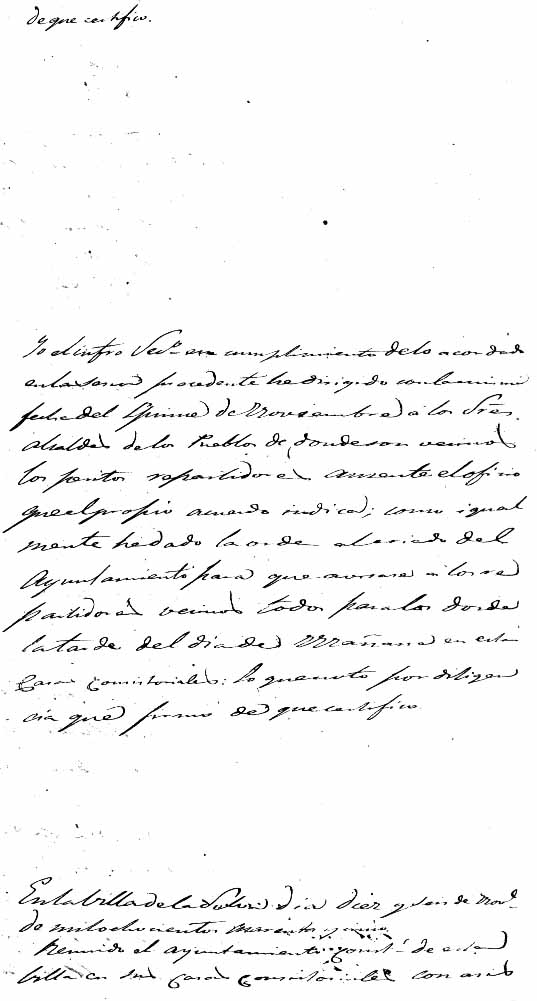 de que certifico.
Yo el infro Secº en cumplimiento de lo acordado
en la sesion precedente he dirigido con la misma
fecha del Quince de Noviembre a los Sres.
alcaldes de los Pueblos de donde son vecinos
los peritos repartidores ausente el oficio
que el propio acuerdo indica; como igual
mente he dado la orden al criado del
Ayuntamiento para que avisase a los re
partidores vecinos todos para las dos de
la tarde del dia de Mañana en estas
Casas Consistoriales: lo que anoto por diligen
cia que firmo de que certifico
En la Villa de la dia diez y seis de Nov.
de mil ochocientos
Reunido el ayuntamiento const.l de esta
villa en sus Casas Consistoriales con asis